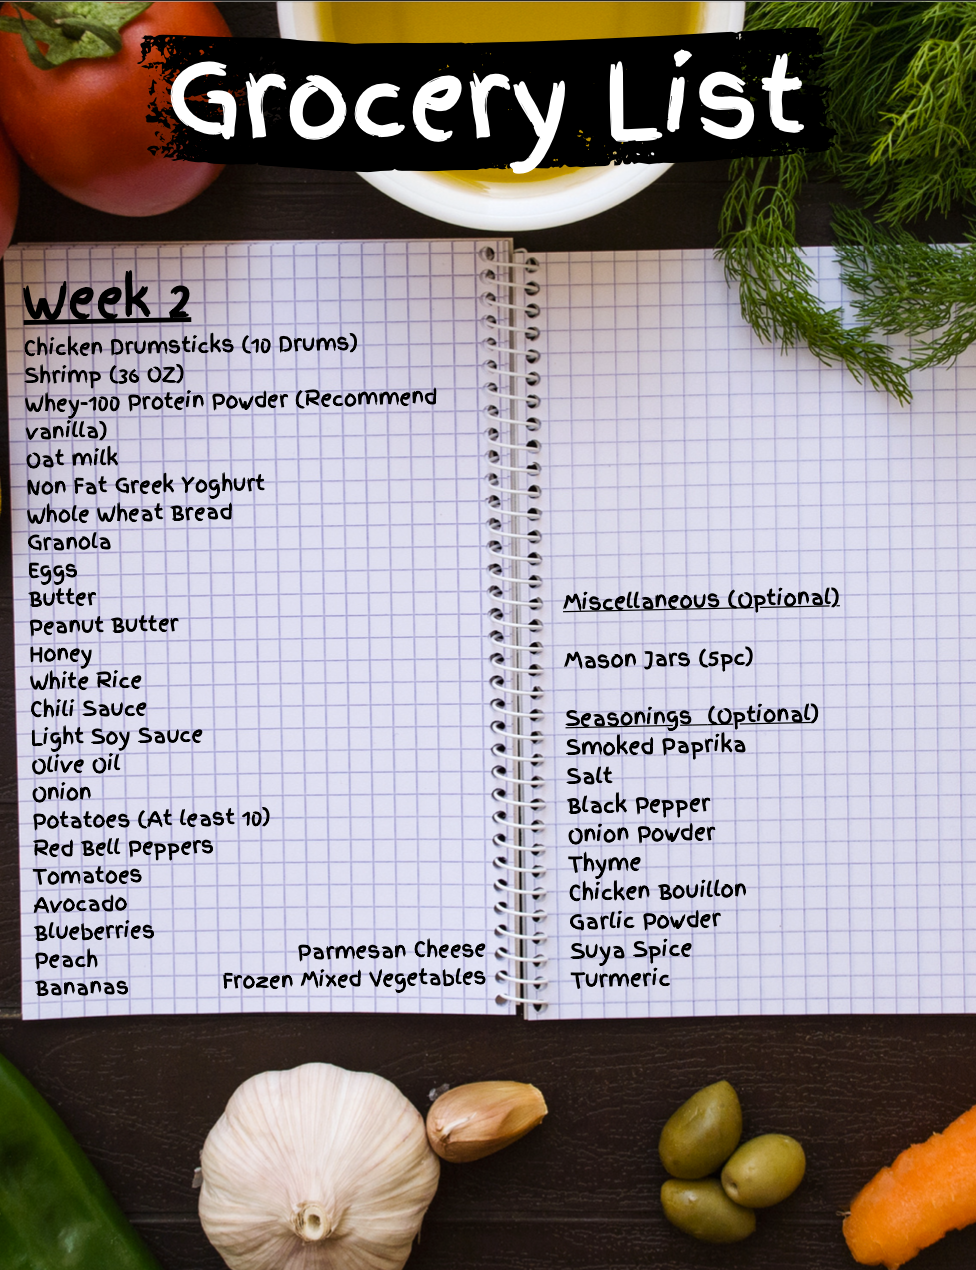 Grocery List
Week 2
Chicken Drumsticks (10 Drums)
Shrimp (36 OZ)
Whey-100 Protein Powder (Recommend
vanilla)
Oat milk
Non Fat Greek Yoghurt
Whole Wheat Bread
Granola
Eggs
Butter
Peanut Butter
Honey
White Rice
Chili Sauce
Light Soy Sauce
Olive Oil
Onion
Potatoes (At least 10)
Red Bell Peppers
Tomatoes
Avocado
Blueberries
Peach
Bananas
Parmesan Cheese
Frozen Mixed Vegetables
Miscellaneous (Optional)
Mason Jars (5pc)
Seasonings (Optional)
Smoked Paprika
Salt
Black Pepper
Onion Powder
Thyme
Chicken Bouillon
Garlic Powder
Suya Spice
Turmeric